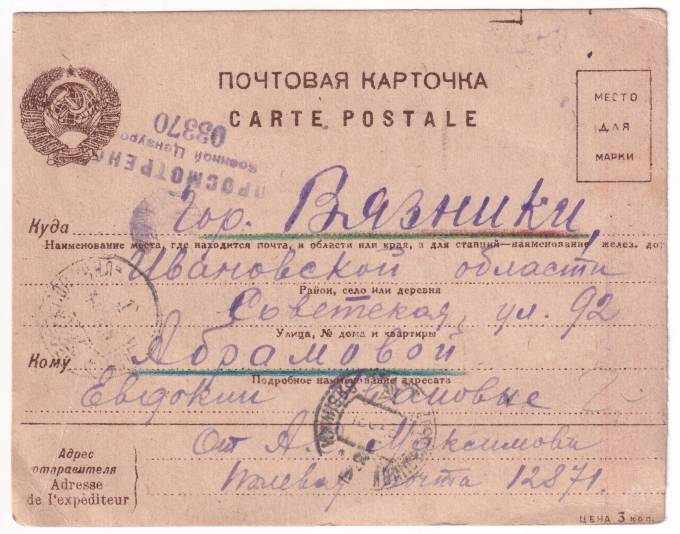 ПОЧТОВАЯ КАРТОЧКА
CARTE POSTALE
МЕСТО
ДЛЯ
МАРКИ
ПРОСМОТРЕНО
Военной Цензурой
03370
Куда Гор. Вязники,
Наименование места, где находится почта, и области или края, а для станций—наименование желез. до
Ивановской области
Район, село или деревня
Советская, ул. 92
Улица, № дома и квартиры
Кому Абрамовой
Подробное наименование адресата
Евдокии
От А. С. Максимова
Адрес
отправителя
Adresse
de l'expéditeur
почта 12871.
ЦЕНА 3 коп.